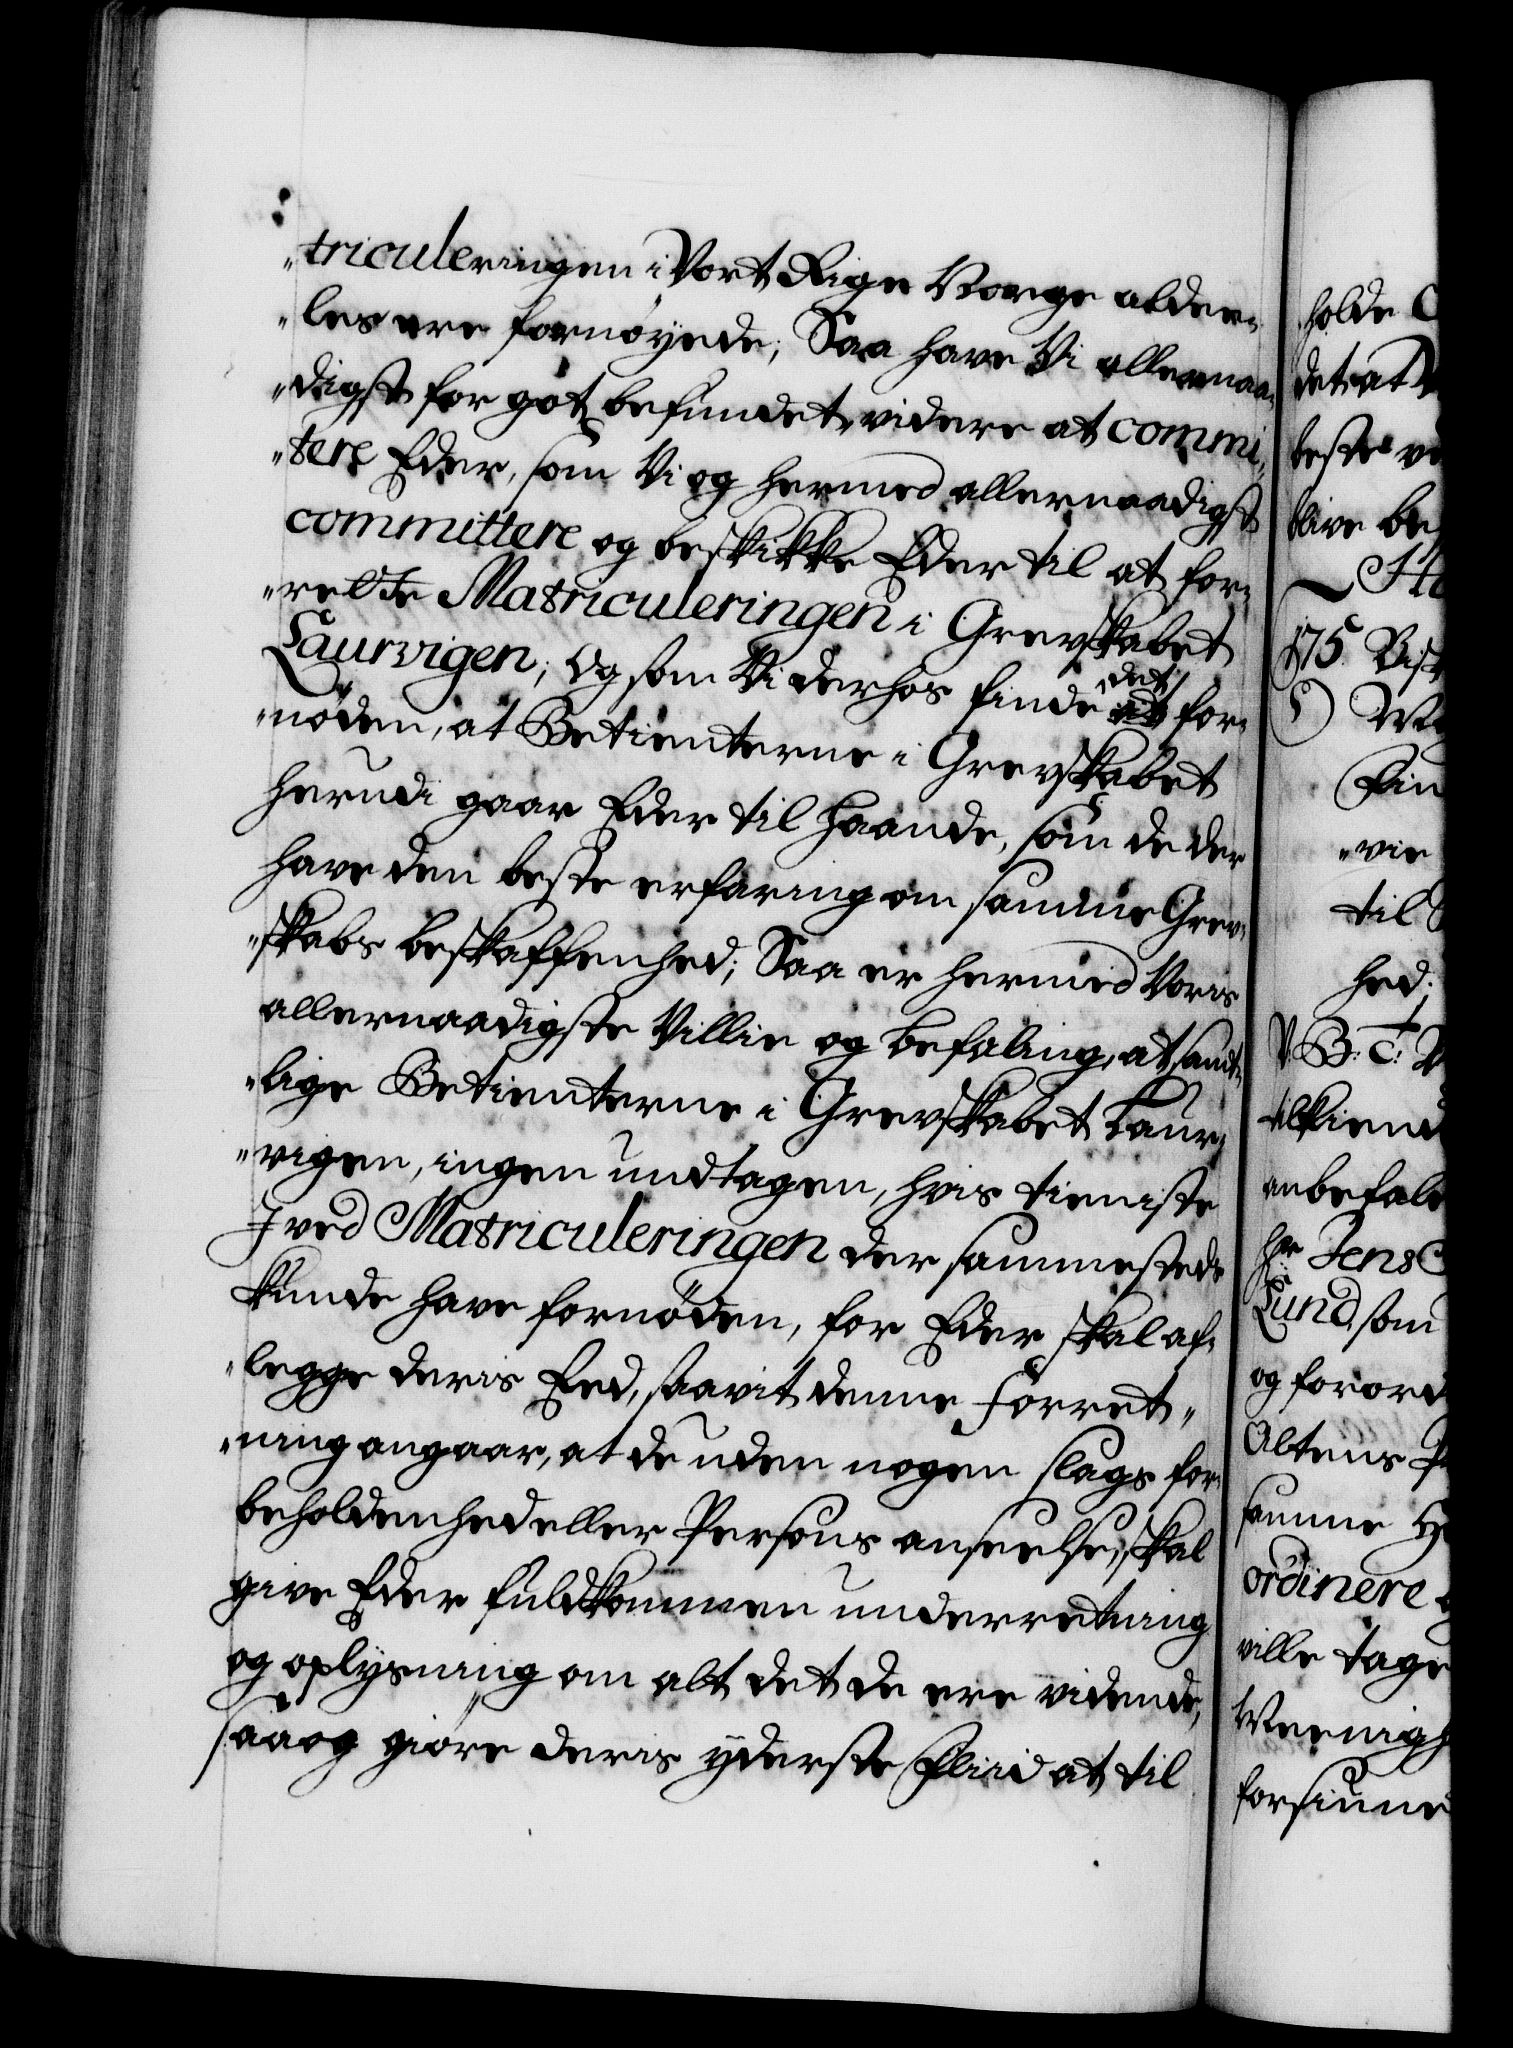 "triculeringen i Vort Rige Norge alder-
"les ere fornøyede; Saa have Vi allernaa-
"digst for got befundet, videre at commi-
"tere Eder, som Vi og hermed allernaadigst
committere og beskikke Eder til at for-
"rette Matriculeringen i Grevskabet
Laurvigen; Og som Vi derhos finde det for-
"nøden, at Betienterne i Grevskabet
herudi gaar Eder til haande, som de der
have den beste erfaring om samme Grev-
"skabs beskaffenhed; Saa er hermed Voris
allernaadigste Villie og befaling, at samt-
"lige Betienterne i Grevskabet Laur-
"vigen, ingen undtagen, hvis tieniste
I ved Matriculeringen der sammesteds
kunde have fornøden, for Eder skal af-
"legge deris Eed, saavit denne Forret-
"ning angaar, at de uden nogen slags for-
beholdenhed eller Persons anseelse, skal
give Eder fuldkommen underretning
og oplysning om alt det de ere vidende,
saa og giøre deris yderste Fliid at til
holde
det at
beste
blive
175. Bisp
Fin
"vie
til
hed;
V. B: T:
tilkiend
anbefale
Hr Jens
Lund, som
og forord
Altens
samme
ordinere
ville tage
forsiune